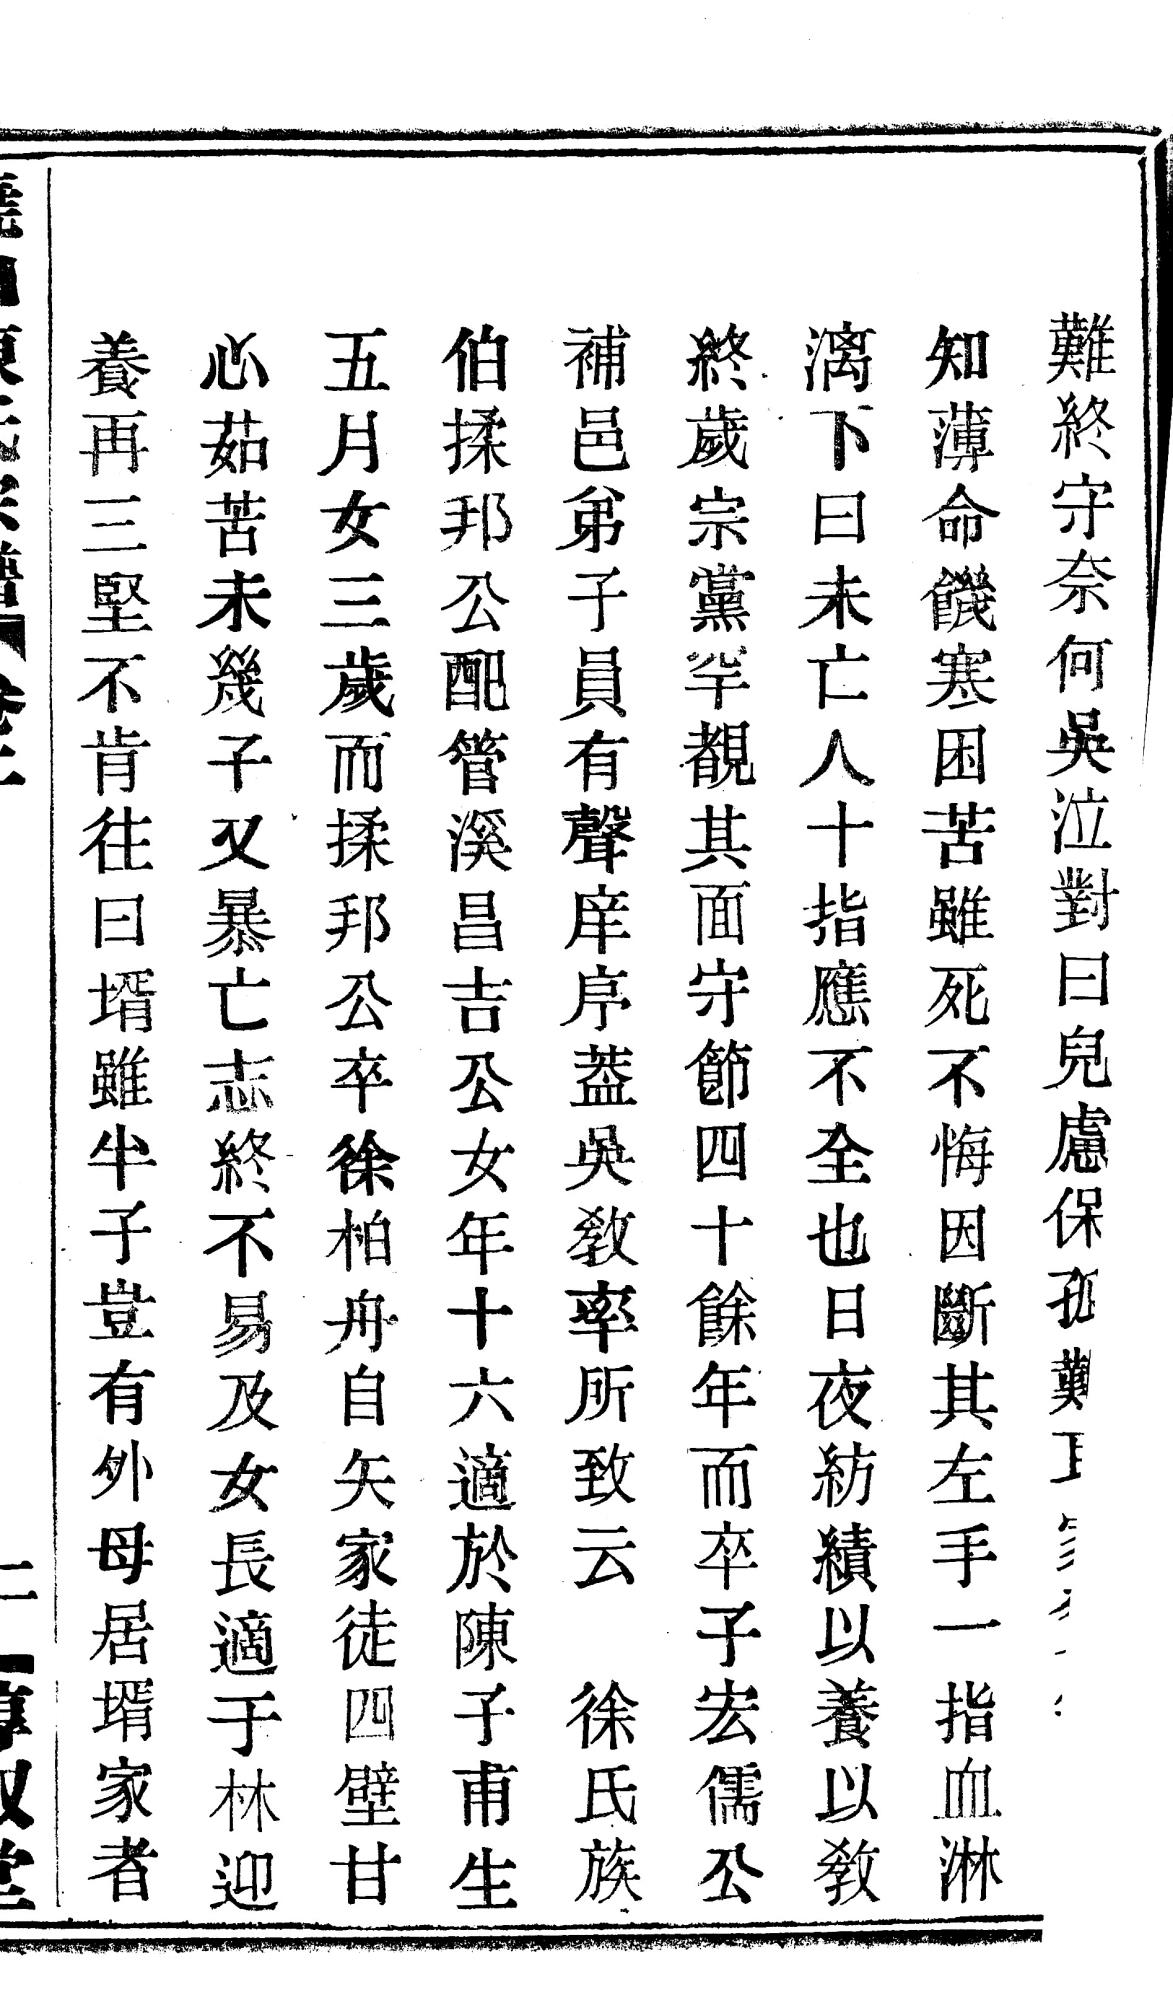 難終守奈何吳泣對曰兒慮保孤難耳
知薄命饑寒困苦雖死不悔因斷其左手一指血淋
漓下曰未亡人十指應不全也日夜紡績以養以敎
終歲宗黨罕覩其面守節四十餘年而卒子宏儒公
補邑弟子員有聲庠序蓋吳敎率所致云　徐氏族
伯揉邦公配管溪昌吉公女年十六適於陳子甫生
五月女三歲而揉邦公卒徐柏舟自矢家徒四壁甘
心茹苦未幾子又暴亡志終不易及女長適于林迎
養再三堅不肯往曰壻雖半子豈有外母居壻家者
氏宗譜 卷二 敘堂